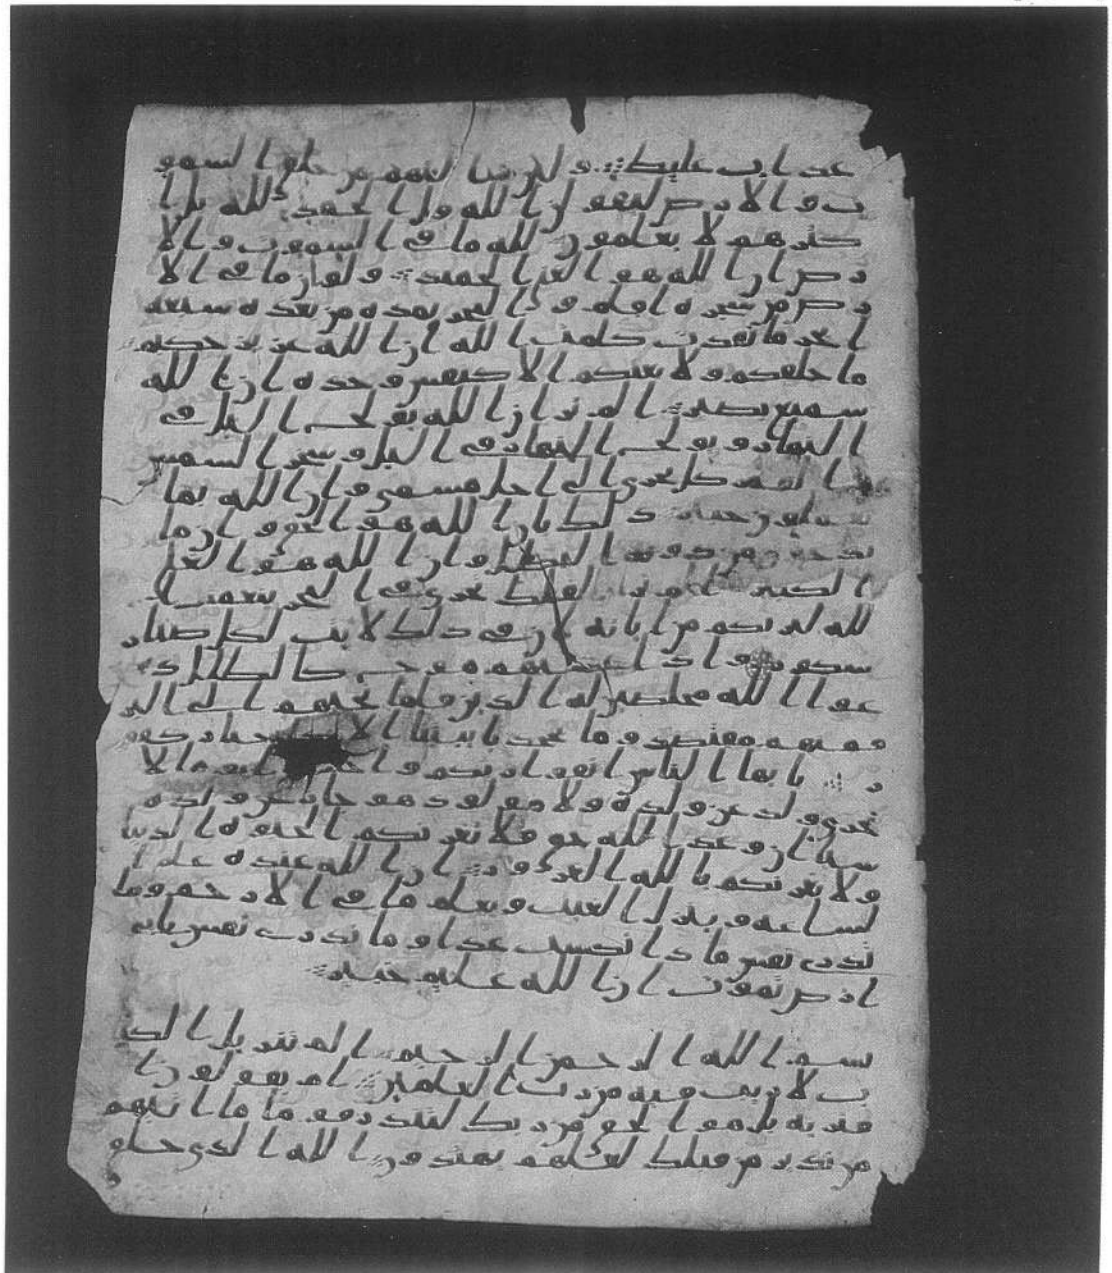 عذاب غليظ ولئن سالتهم من خلق السمو
ت والارض ليقولن الله قل الحمد لله بل ا
كثرهم لا يعلمون لله ما في السموت والا
رض ان الله هو الغني الحميد ولو ان ما في الا
رض من شجره اقلم والبحر يمده من بعده سبعه
ابحر ما نفدت كلمت الله ان الله عزيز حكيم
ما خلقكم ولا بعثكم الا كنفس وحده ان الله
سميع بصير الم تر ان الله يولج اليل في
النهار ويولج النهار في اليل وسخر الشمس
والقمر كل يجري الى اجل مسمى وان الله بما
تعملون خبير ذلك بان الله هو الحق وان ما
يدعون من دونه البطل وان الله هو العلي
الكبير الم تر ان الفلك تجري في البحر بنعمت ا
لله ليريكم من ايته ان في ذلك لايت لكل صبار
شكور واذا غشيهم موج كالظلل د
عوا الله مخلصين له الدين فلما نجيهم الى البر
فمنهم مقتصد وما يجحد بايتنا الا ختار كفو
ر يايها الناس اتقوا ربكم واخشوا يوما لا
يجزي ولد عن ولده ولا مولود هو جاز عن ولده
شيا ان وعد الله حق فلا تغرنكم الحيوه الدنيا
ولا يغرنكم بالله الغرور ان الله عنده علم ا
لساعه وينزل الغيث ويعلم ما في الارحم وما
تدري نفس ماذا تكسب غدا وما تدري نفس باي
ارض تموت ان الله عليم خبير
بسم الله الرحمن الرحيم الم تنزيل الكت
ب لا ريب فيه من رب العلمين ام يقولون ا
فتريه بل هو الحق من ربك لتنذر قوما ما اتيهم
من نذير من قبلك لعلهم يهتدون الله الذي خلق